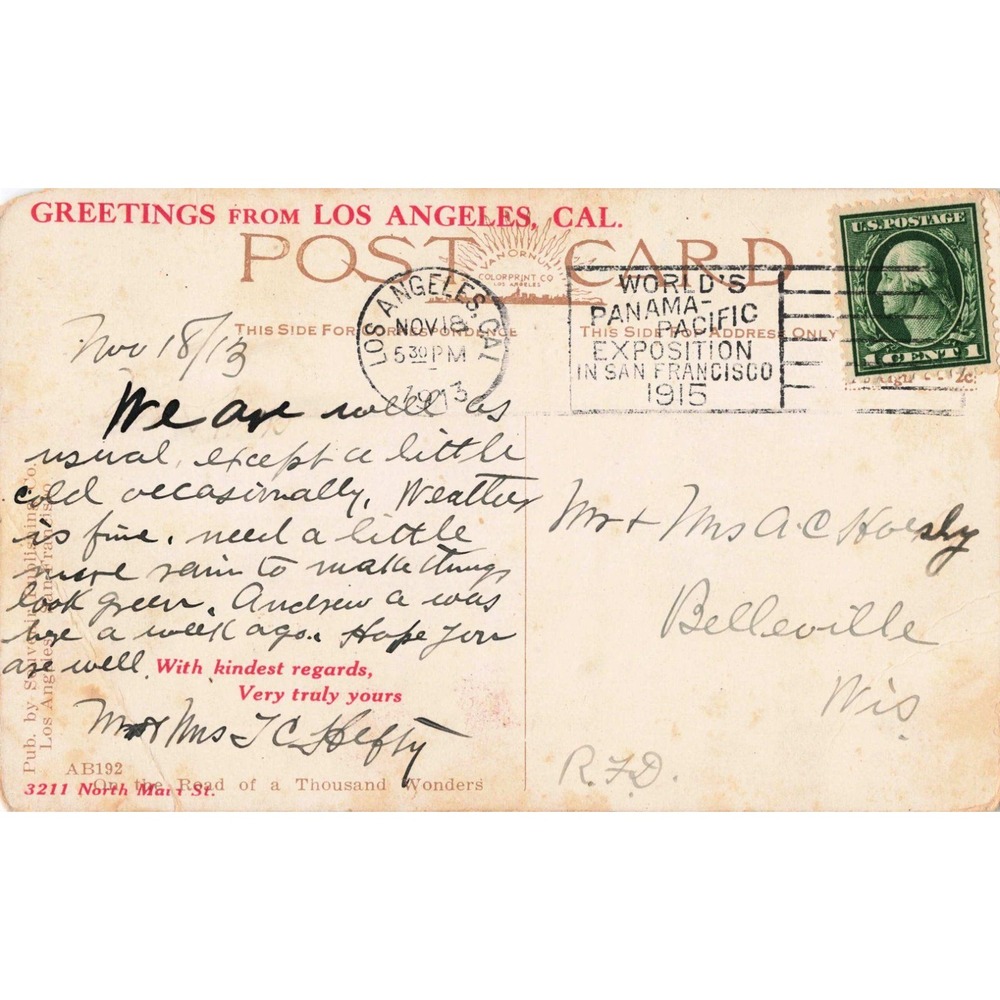 GREETINGS FROM LOS ANGELES, CAL.
POST CARD
VAN ORNUM
COLORPRINT CO
LOS ANGELES
THIS SIDE FOR CORRESPONDENCE
THIS SIDE FOR ADDRESS ONLY
LOS ANGELES, CAL
NOV 18
5 30 PM
1913
WORLD'S
PANAMA-
PACIFIC
EXPOSITION
IN SAN FRANCISCO
1915
U.S. POSTAGE
1 CENT 1
2c
Nov 18/13
We are well as
usual, except a little
cold occasionally. Weather
is fine. need a little
more rain to make things
look green. Andrew a was
here a week ago. Hope you
are well.
With kindest regards,
Very truly yours
Mr & Mrs T C Hefty
3211 North Main St.
AB192
On the Road of a Thousand Wonders
Pub. by Publishing Co.
Los Angeles San Francisco
Mr & Mrs A. C
Belleville
Wis
R.F.D.